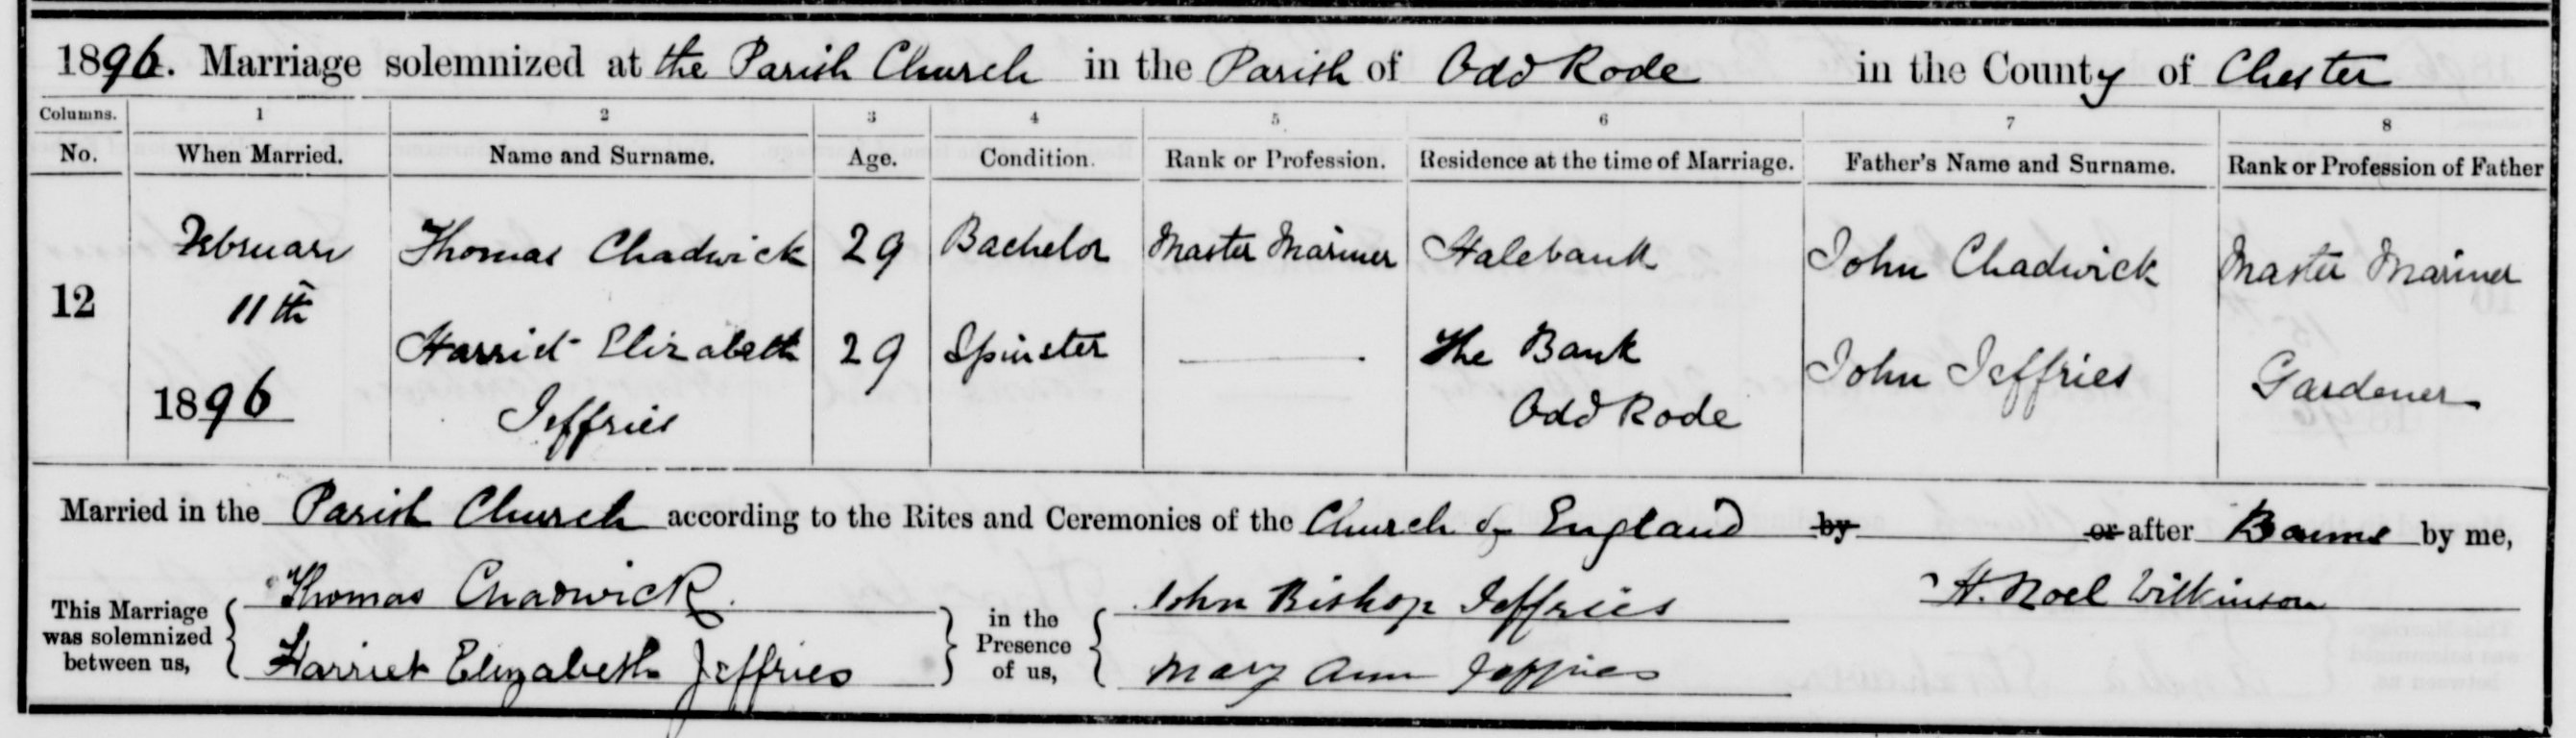 1896. Marriage solemnized at the Parish Church in the Parish of Odd Rode in the County of Chester
Columns. 1 2 3 4 5 6 7 8
No. When Married. Name and Surname. Age. Condition. Rank or Profession. Residence at the time of Marriage. Father's Name and Surname. Rank or Profession of Father
Februari Thomas Chadwick 29 Bachelor Master Mariner Halebank John Chadwick Master Mariner
12 11th Harriet Elizabeth 29 Spinster The Bank John Jeffries Gardener
1896 Jeffries Odd Rode
Married in the Parish Church according to the Rites and Ceremonies of the Church of England by or after Banns by me,
This Marriage was solemnized between us, Thomas Chadwick in the Presence of us, John Bishop Jeffries H. Noel Wilkinson
Harriet Elizabeth Jeffries Mary Ann Jeffries